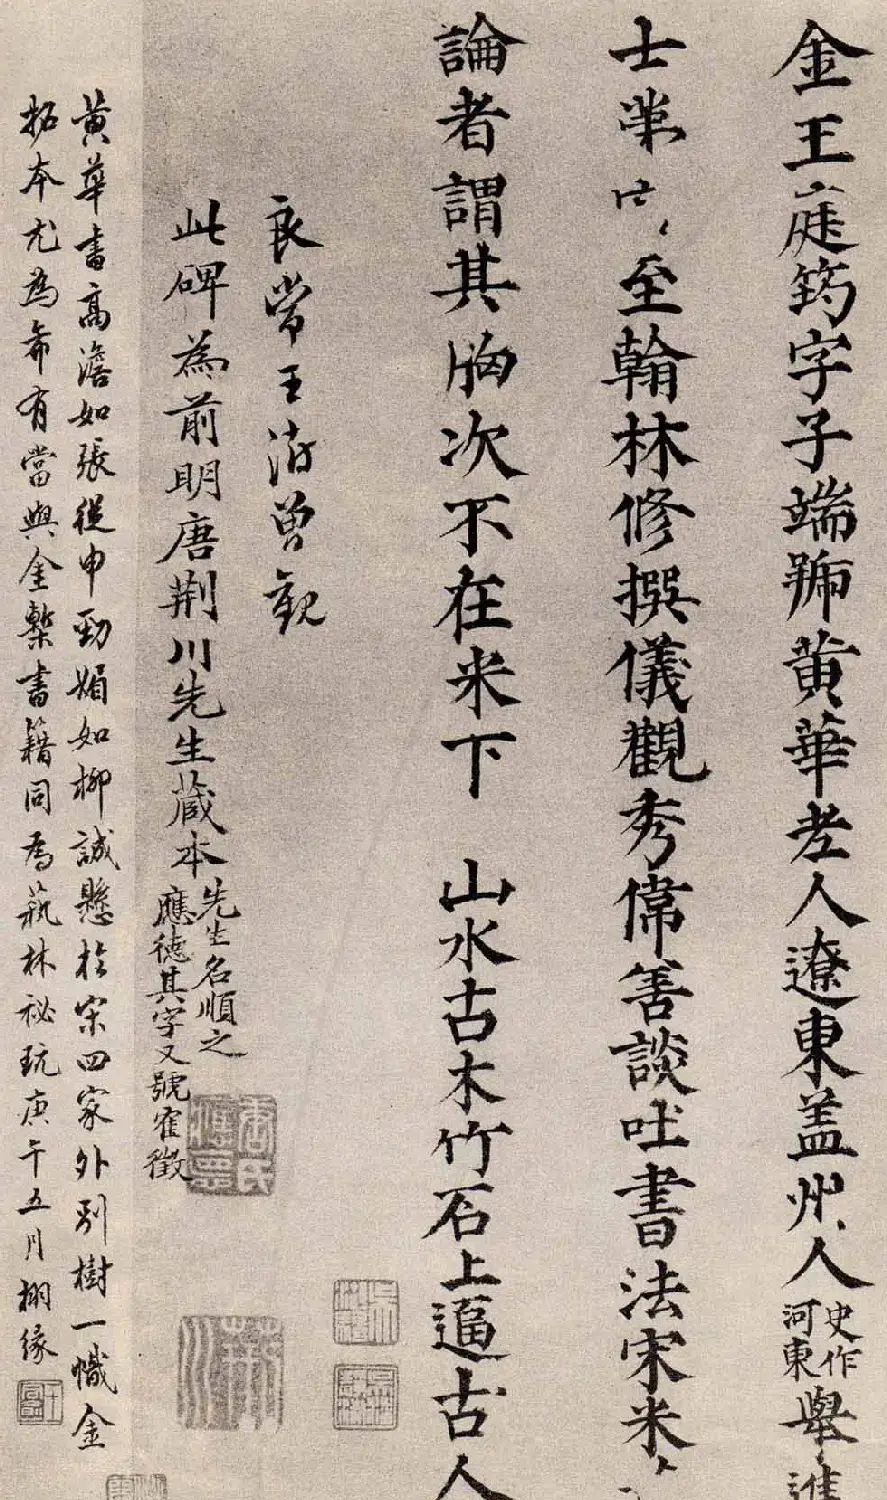 金王庭筠字子端號黃華老人遼東盖州人
史作
河東
舉進
士第 至翰林修撰儀觀秀偉善談吐書法宋米
論者謂其胸次不在米下 山水古木竹石上逼古人
良常王澍曾觀
此碑為前明唐荆川先生藏本
先生名順之
應德其字又號崔徵
黃華書高澹如張從申勁媚如柳誠懸於宋四家外別樹一幟金
拓本尤為希有當與金槧書籍同為蓺林祕玩庚午五月栩緣